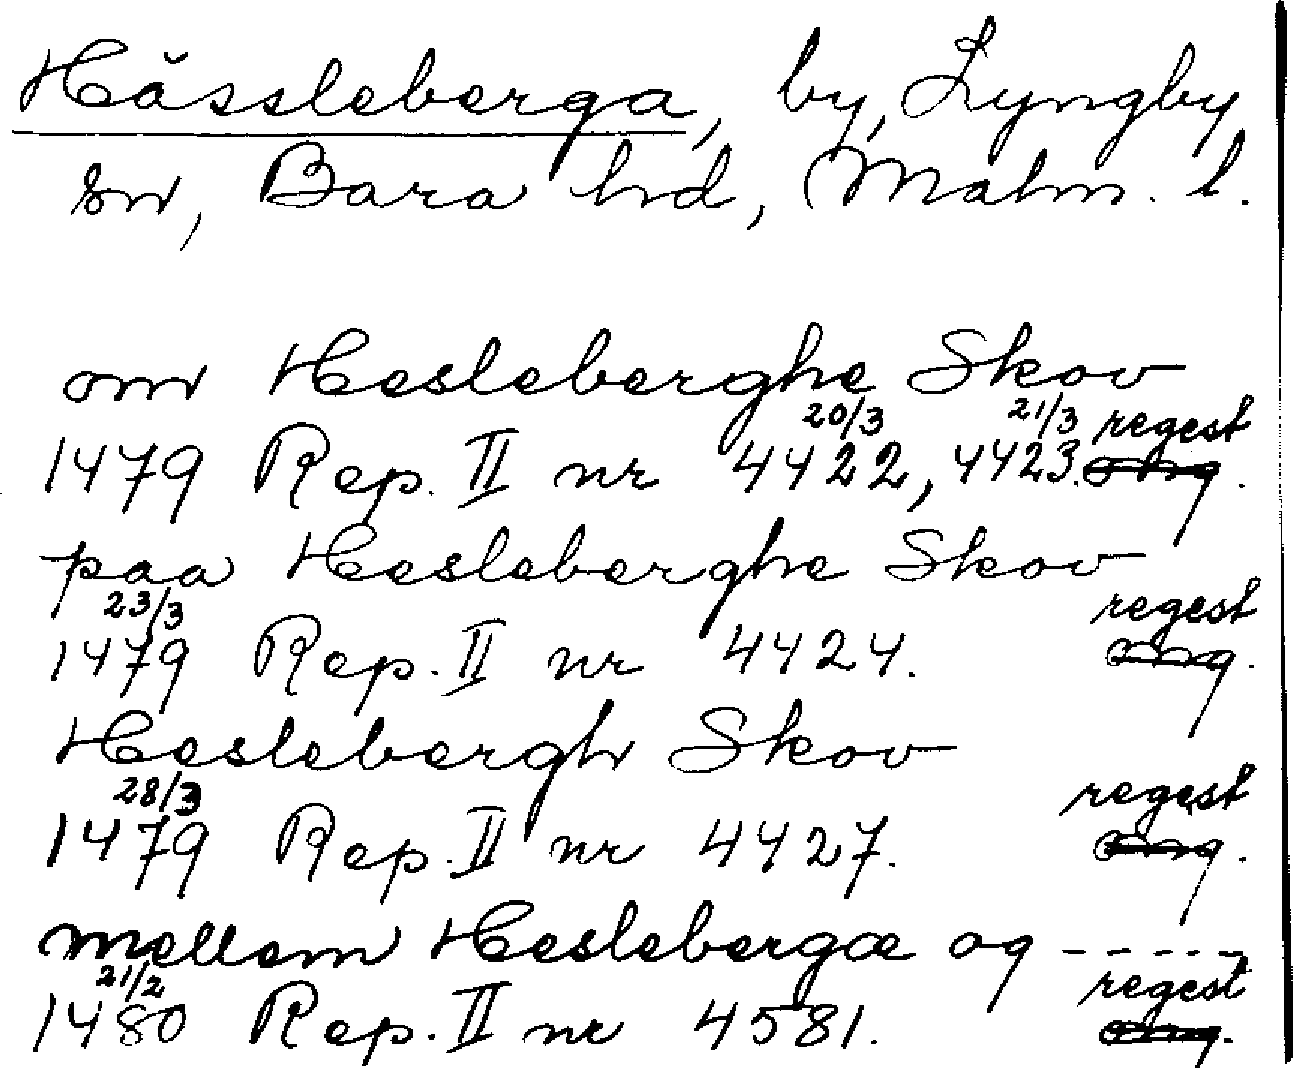 Hässleberga, by, Lyngby
sn, Bara hd, Malm. l.
om Hesleberghe Skov
20/3 21/3 regest
1479 Rep. II nr 4422, 4423. orig.
paa Hesleberghe Skov
23/3 regest
1479 Rep. II nr 4424. orig.
Heslebergh Skov
28/3 regest
1479 Rep. II nr 4427. orig.
mellem Heslebergæ og -----
21/2 regest
1480 Rep. II nr 4581. orig.